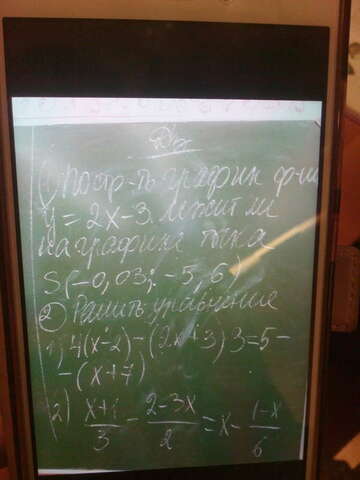 Д/з
① Постр-ть график ф-ии
y = 2x-3. лежит ли
на графике точка
S(-0,03; -5,6)
② Решить уравнение
1) 4(x-2)-(2x+3)3=5-
-(x+7)
2) \frac{x+1}{3} - \frac{2-3x}{2} = x - \frac{1-x}{6}